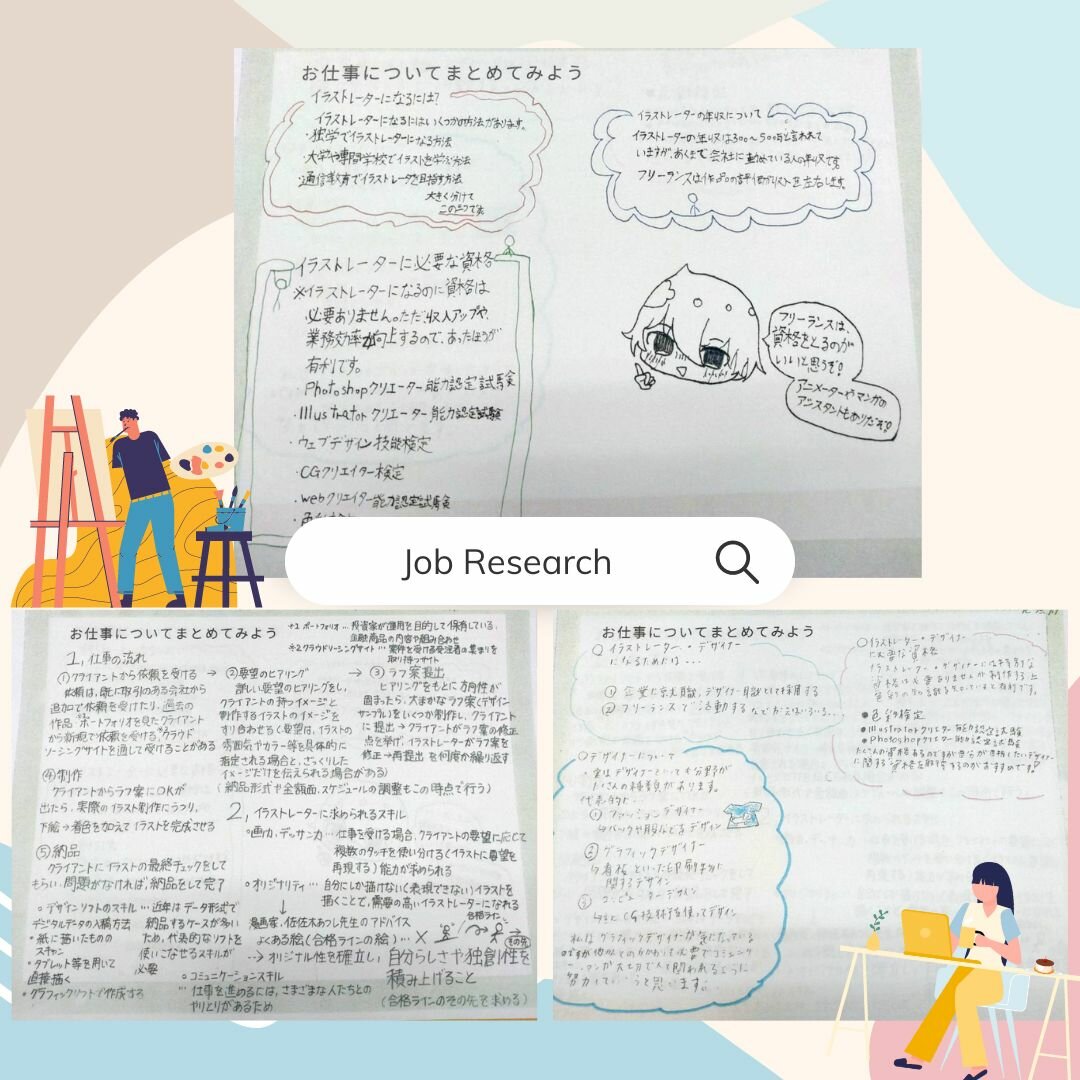 お仕事についてまとめてみよう
イラストレーターになるには?
イラストレーターになるにはいくつかの方法があります。
・独学でイラストレーターになる方法
・大学や専門学校でイラストを学ぶ方法
・通信教育でイラストレータを目指す方法
大きく分けて
この3つです
イラストレーターの年収について
イラストレーターの年収は300〜500万と言われて
いますが、あくまで会社に勤めている人の年収です。
フリーランスは作品の評価が収入を左右します。
イラストレーターに必要な資格
※イラストレーターになるのに資格は
必要ありません。ただ、収入アップや、
業務効率が向上するので、あったほうが
有利です。
・Photoshopクリエーター能力認定試験
・Illustratorクリエーター能力認定試験
・ウェブデザイン技能検定
・CGクリエイター検定
・webクリエイター能力認定試験
フリーランスは、
資格をとるのが
いいと思うぞ!
アニメーターやマンガの
アシスタントもありだぞ!
Job Research
お仕事についてまとめてみよう
※1 ポートフォリオ…投資家が運用を目的して保有している、
金融商品の内容や組み合わせ
※2 クラウドソーシングサイト…案件を受ける受注者の集まりを
取り持つサイト
1, 仕事の流れ
①クライアントから依頼を受ける →
依頼は、既に取引のある会社から
追加で依頼を受けたり、過去の
作品、ポートフォリオを見たクライアント
から新規で依頼を受ける クラウド
ソーシングサイトを通して受けることがある
②要望のヒアリング →
詳しい要望のヒアリングをし、
クライアントの持つイメージと
制作するイラストのイメージを
すり合わせる(要望は、イラストの
雰囲気やカラー等を具体的に
指定される場合と、ざっくりした
イメージだけを伝えられる場合がある)
(納品形式や金額面、スケジュールの調整もこの時点で行う)
③ラフ案提出
ヒアリングをもとに方向性が
固まったら、大まかなラフ案(デザイン
サンプル)をいくつか制作し、クライアント
に提出→クライアントがラフ案の修正
点を挙げ、イラストレーターがラフ案を
修正→再提出 を何度か繰り返す
④制作
クライアントからラフ案にOKが
出たら、実際のイラスト制作にうつり、
下絵→着色を加えてイラストを完成させる
⑤納品
クライアントにイラストの最終チェックをして
もらい、問題がなければ、納品をして完了
2, イラストレーターに求められるスキル
○画力、デッサン力…仕事を受ける場合、クライアントの要望に応じて
複数のタッチを使い分ける(イラストに要望を
再現する)能力が求められる
○オリジナリティ…自分にしか描けない(表現できない)イラストを
描くことで、需要の高いイラストレーターになれる
↓
漫画家、佐佐木あつし先生のアドバイス
合格ライン
よくある絵(合格ラインの絵)…×
その先
--→オリジナル性を確立し、自分らしさや独創性を
積み上げること
(合格ラインのその先を求める)
○デザインソフトのスキル…近年はデータ形式で
納品するケースが多い
ため、代表的なソフトを
使いこなせるスキルが
必要
デジタルデータの入稿方法
・紙に描いたものの
スキャン
・タブレット等を用いて
直接描く
・グラフィックソフトで作成する
○コミュニケーションスキル
…仕事を進めるには、さまざまな人たちとの
やりとりがあるため
お仕事についてまとめてみよう
○イラストレーター・デザイナー
になるためには…
① 企業に
デザイナー職として採用する
② フリーランスで活動する
○イラストレーター・デザイナー
に必要な資格
イラストレーター・デザイナーには
●色彩検定
●Illustratorクリエーター能力認定試験
●Photoshopクリエーター能力認定試験
たくさんの資格
○デザイナー
実はデザイナーといっても分野が
たくさんの種類があります。
代表的な…
①ファッションデザイナー
バックや服などをデザイン
②グラフィックデザイナー
看板といった印刷物に
関するデザイン
CG技術を使ってデザイン
私はグラフィックデザイナーが気になっている